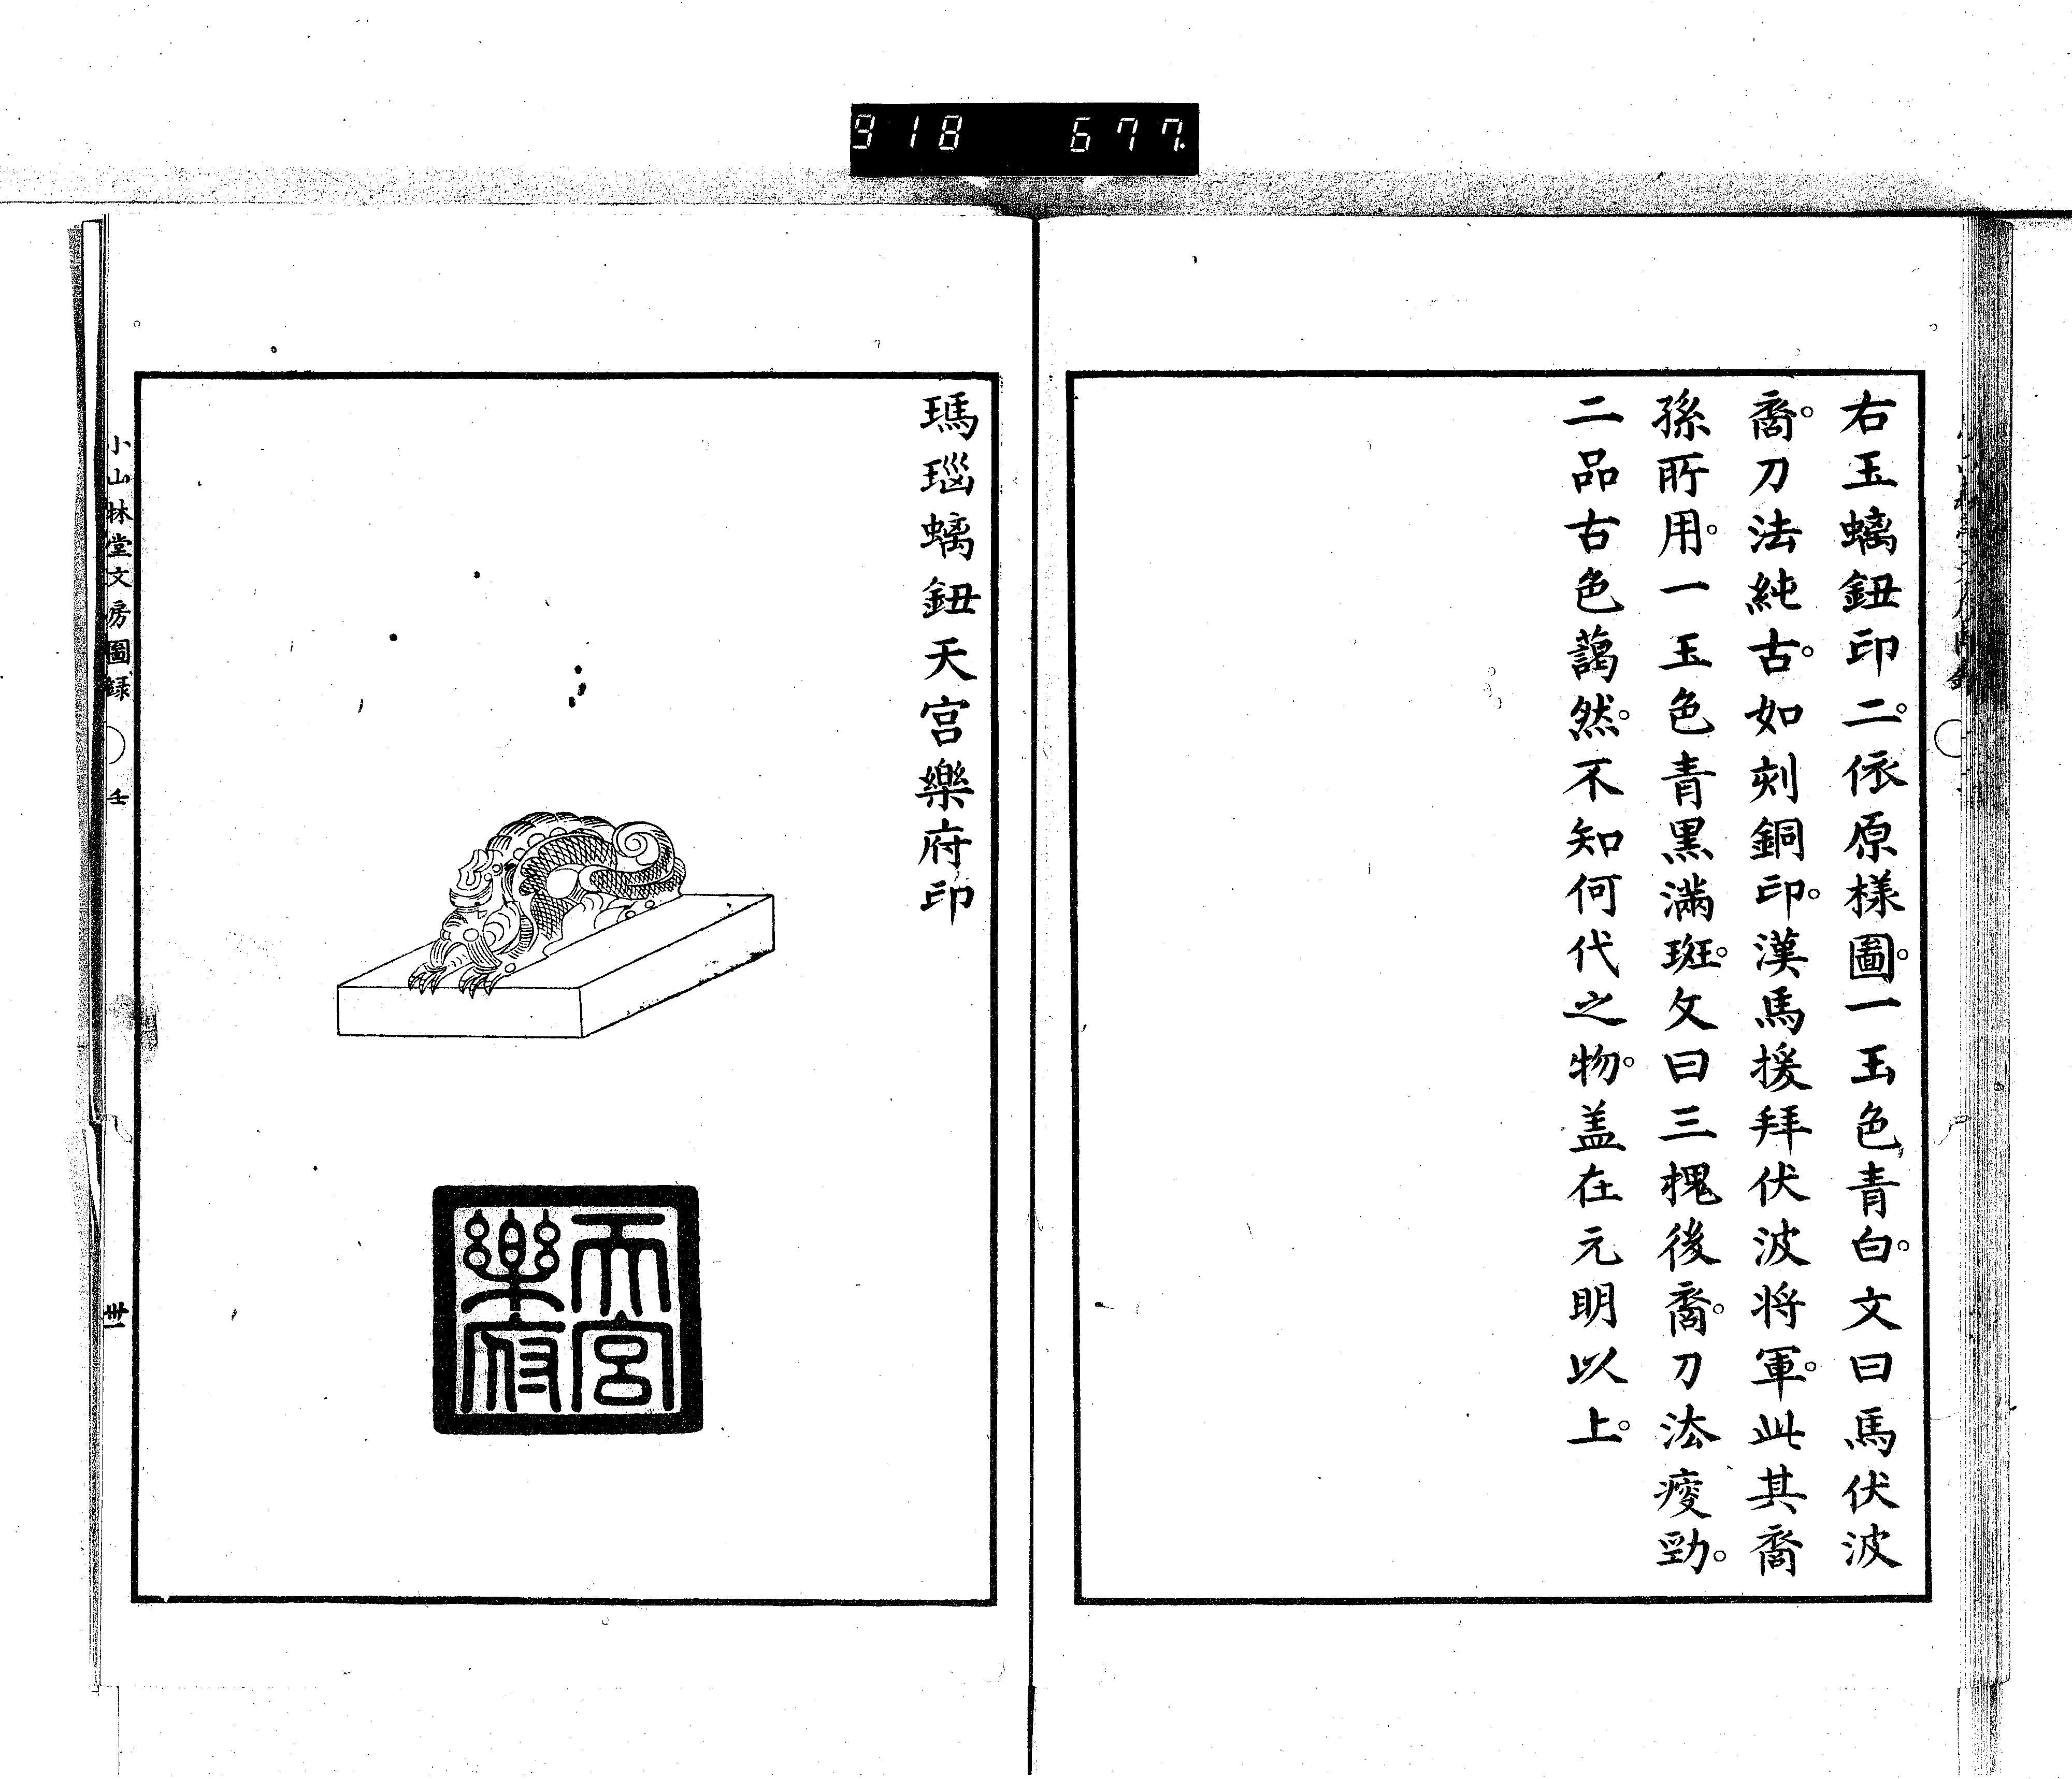 918 677
右玉螭鈕印二。依原樣圖。一玉色青白。文曰馬伏波
裔。刀法純古。如刻銅印。漢馬援拜伏波将軍。此其裔
孫所用。一玉色青黒滿斑。文曰三槐後裔。刀法瘦勁。
二品古色藹然。不知何代之物。盖在元明以上。
瑪瑙螭鈕天宮樂府印
天宮
樂府
小山林堂文房圖録 壬 卅一